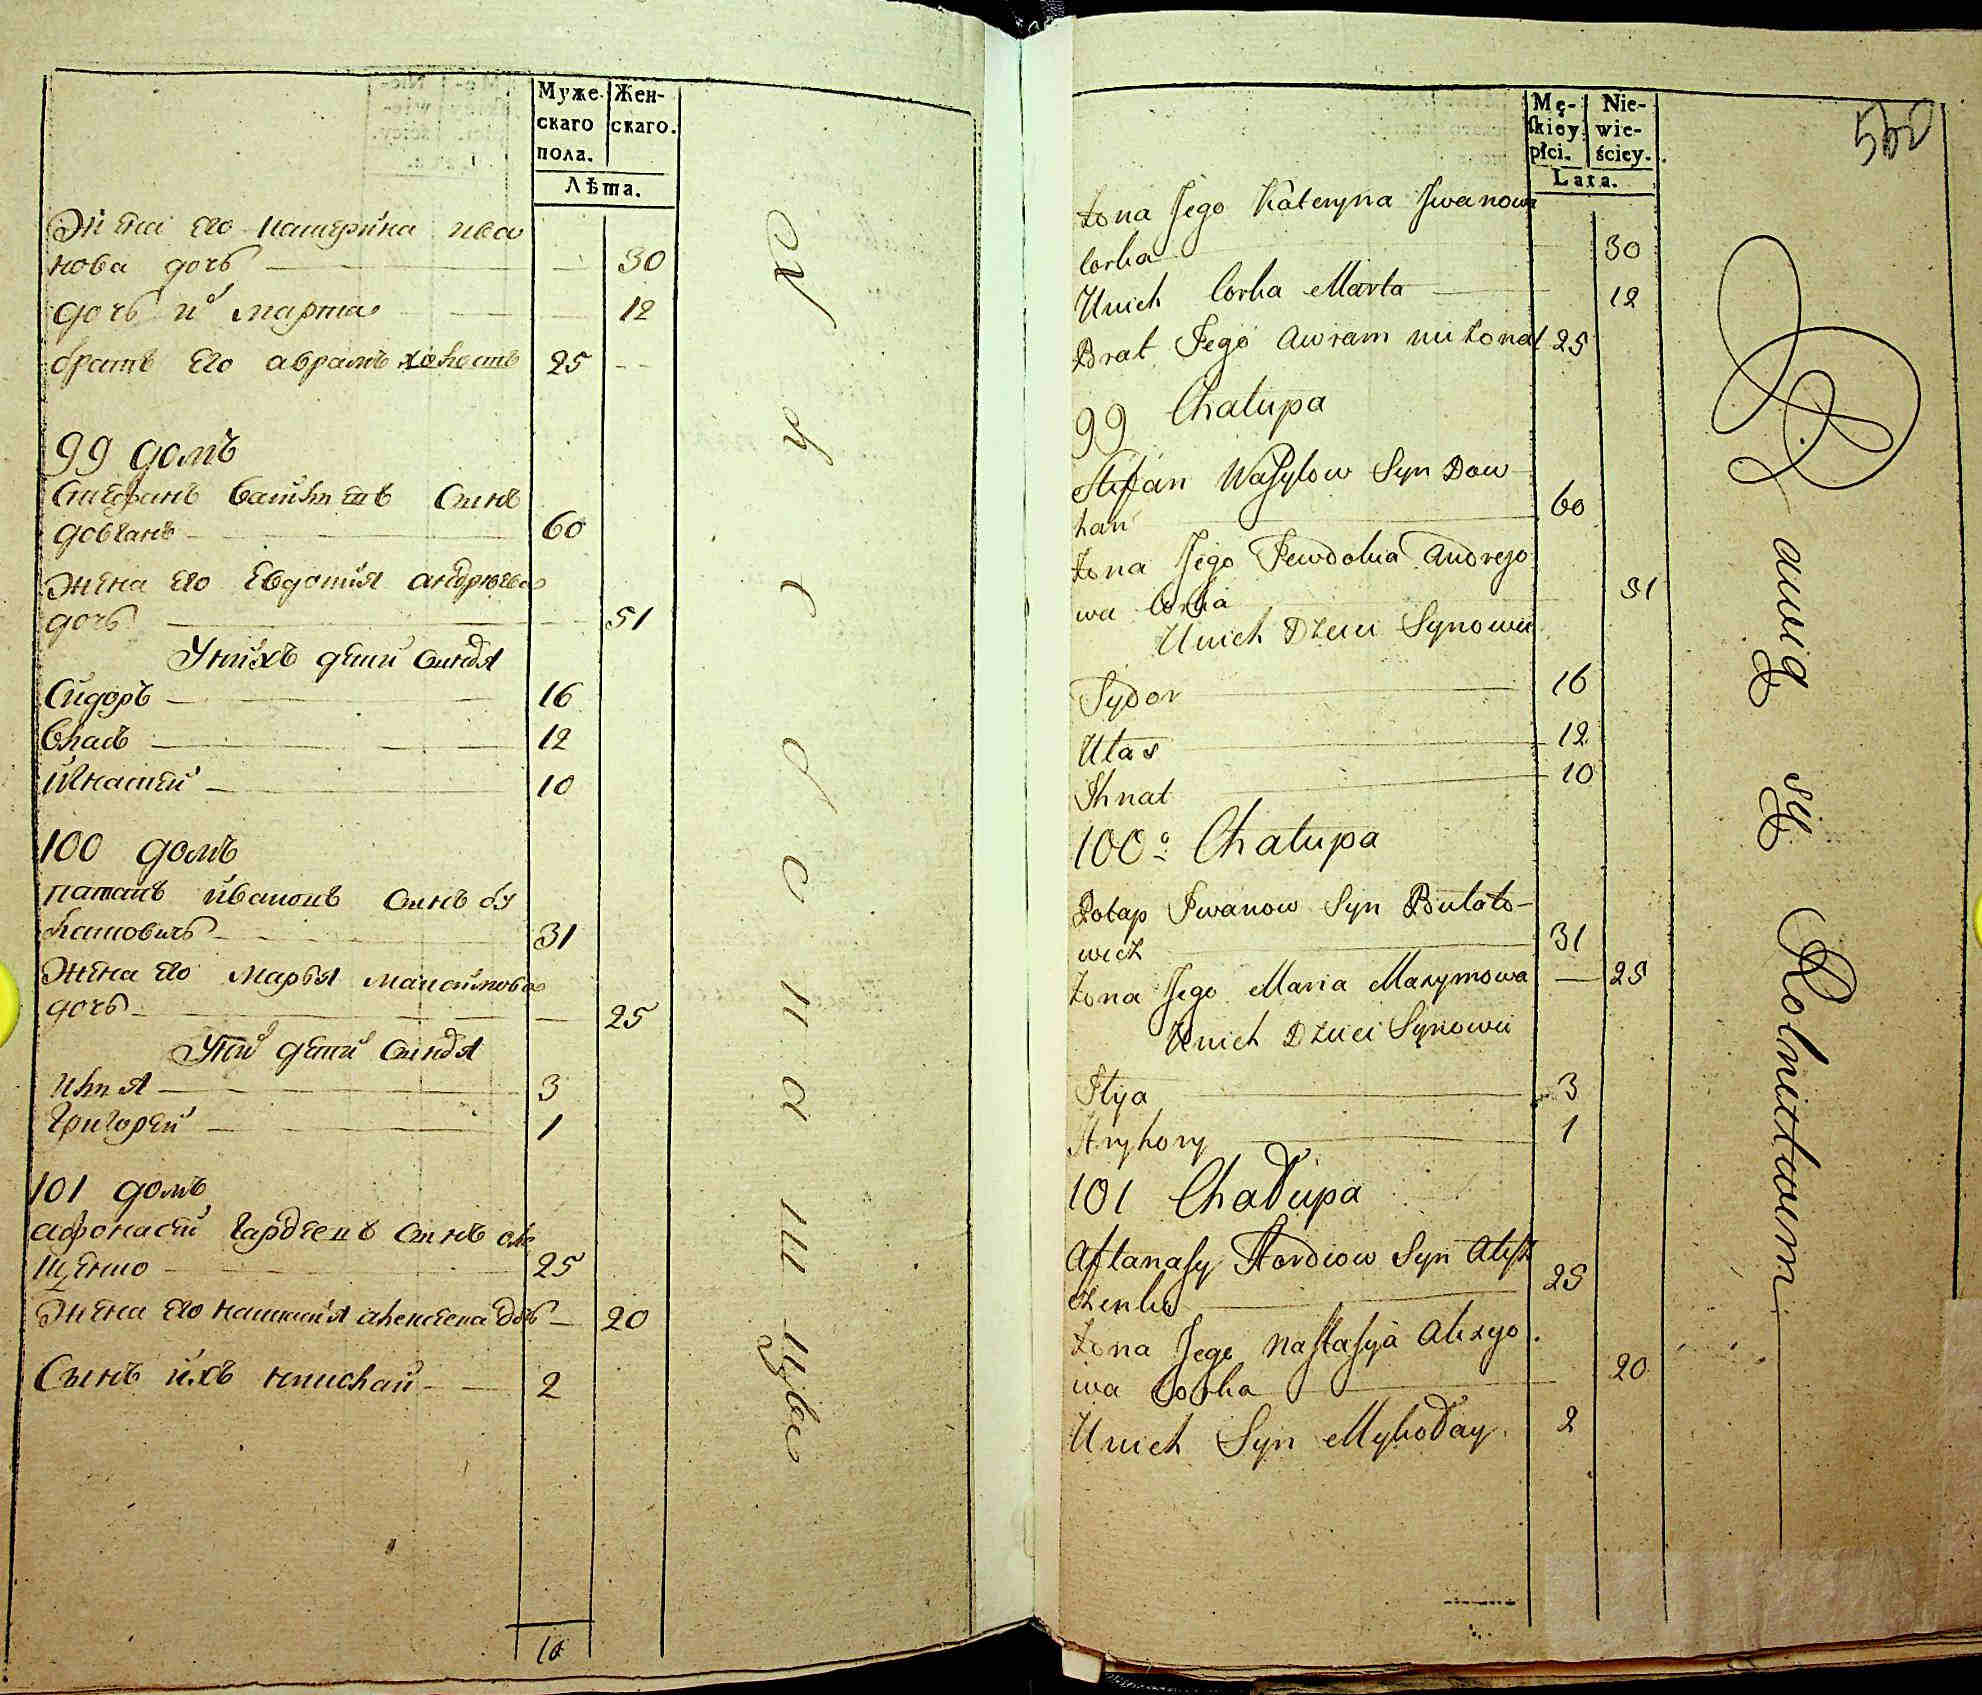 Муже-
скаго
пола.
Жен-
скаго.
Лѣта.
Жена его катерина ива
нова дочь 30
дочь и марта 12
братъ его аврамъ холостъ 25
99 домъ
Стефанъ Васильевъ Синъ
довганъ 60
Жена его Евдокия андреева
дочь 51
У нихъ дети Синовя
Сидоръ 16
Власъ 12
Игнатей 10
100 домъ
патапъ ивановъ Синъ бу
латовичъ 31
Жена его марья максимова
дочь 25
У них дети Синовя
илия 3
Григорей 1
101 домъ
афонасей Гордеевъ Синъ оле
щенко 25
Жена его настасия алексеева дочь 20
Сынъ ихъ николай 2
10
Mę-
ſkiey
płci.
Nie-
wie-
ściey.
Lata.
560
Żona Jego Kateryna Jwanowa
Corka 30
Unich Corka Marta 12
Brat Jego Awram nieżonat 25
99 Chałupa
Stefan Wasylow Syn Dow
han 60
Żona Jego Jewdokia Andrejo
wa Corka 51
Unich Dzieci Synowie
Sydor 16
Ułas 12
Ihnat 10
100 Chałupa
Potap Jwanow Syn Bułato-
wicz 31
Żona Jego Maria Maxymowa 25
Unich Dzieci Synowie
Ilya 3
Hryhory 1
101 Chałupa
Aftanasy Hordiow Syn Alesz
czenko 25
Żona Jego Nastasya Alexyo
wa Corka 20
Unich Syn Mykołay 2
Bawią się Rolnictwem